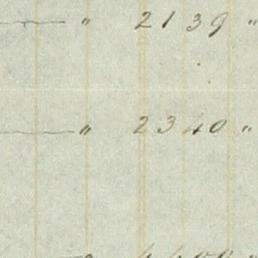 " 2139 "
" 2340 "